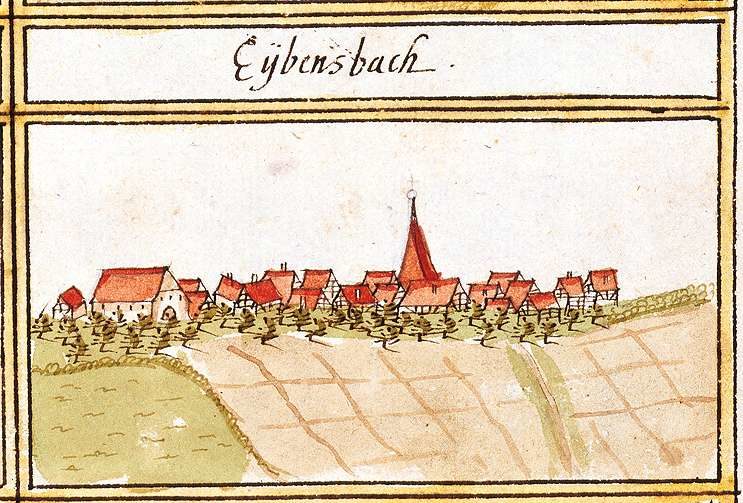 Eÿbensbach .